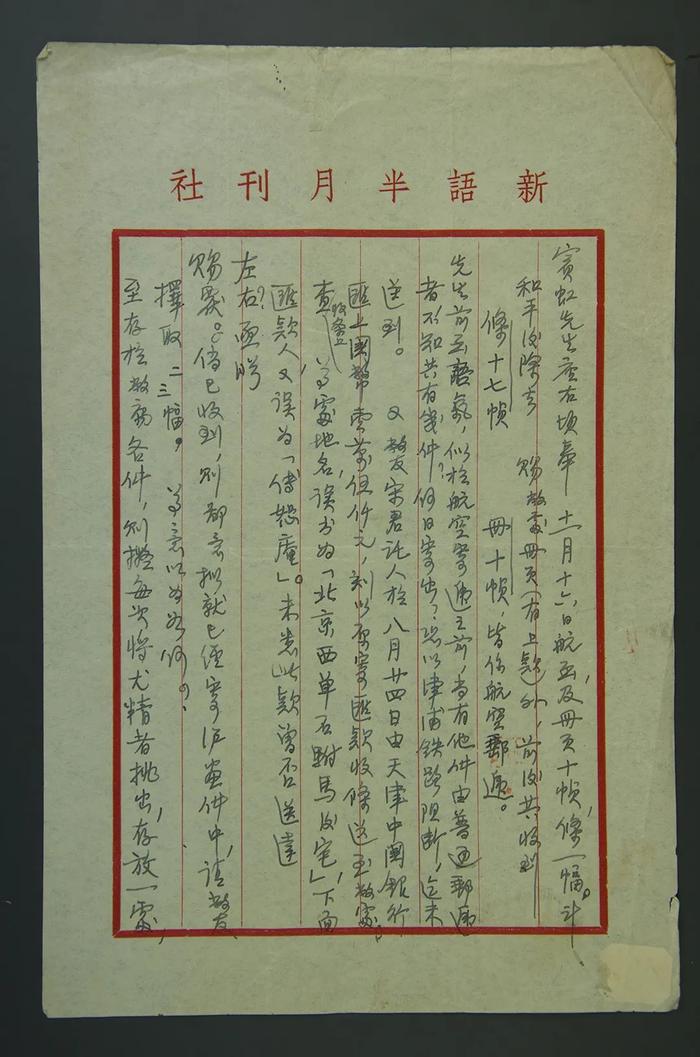 新語半月刊社
賓虹先生座右頃奉 十一月十六日航函及冊頁十幀，條一幅。計
和平後除去 賜敝處冊頁（有上款）外，前後共收到
條十七幀 冊十幀，皆係航空郵遞。
先生前函語氣，似於航空寄遞之前，尚有他件由普通郵遞
者，不知共有幾件？何日寄出？恐以津浦鐵路阻斷，迄未
送到。 又敝友宋君託人於八月廿四日由天津中國銀行
匯上國幣壹萬伍仟元，刻以原寄匯款收條送至敝處，
查 尊處地名，誤書為「北京西單石駙馬後宅」，下面
匯款人又誤為「傅怒庵」。未悉此款曾否送達
左右？函盼
賜覆。倘已收到，則鄙意擬就已經寄滬畫件中，請敝友
擇取二三幅。 尊意以為如何？
至存於敝齋各件，則擬每次將尤精者挑出，存放一處，